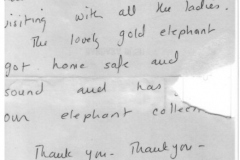 visiting with all the ladies.
The lovely gold elephant
got home safe and
sound and has
our elephant collec
Thank you - Thank you -